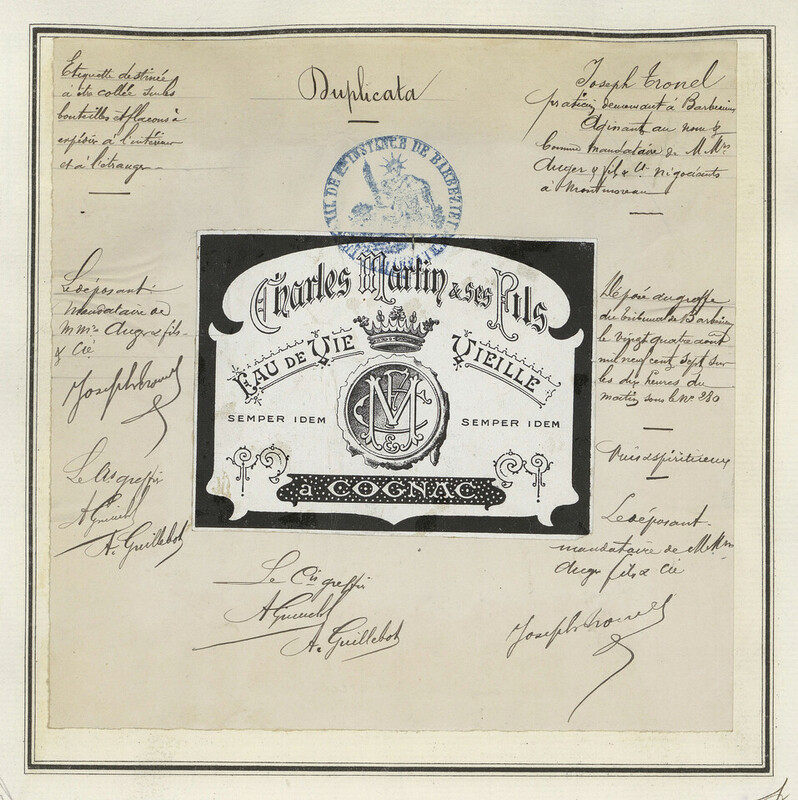 Duplicata
Etiquette destinée
à être collée sur les
bouteilles et flacons à
expédier à l'intérieur
et à l'étranger
Joseph Tronel
praticien demeurant à Barbezieux
Agissant au nom &
comme mandataire de M Mrs
Auger & fils & Cie négociants
à
TRIB. DE 1re INSTANCE DE BARBEZIEUX
Charles Martin & ses Fils
EAU DE VIE VIEILLE
SEMPER IDEM SEMPER IDEM
à COGNAC
Le déposant:
mandataire de
MMrs Auger & fils
& Cie
Joseph Tronel
Le Cis greffier
A. Guillebot
Déposée au greffe
du tribunal de Barbezieux
le vingt quatre août
mil neuf cent sept sur
les dix heures du
matin sous le No 280
Vins & spiritueux
Le déposant
mandataire de M Mrs
Auger fils & Cie
Joseph Tronel
Le Cis greffier
A. Guillebot